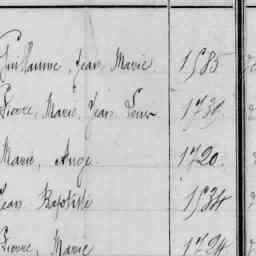 Guillaume, Jean Marie 1585
Pierre, Marie, Jean Louis 1739
Marie, Ange 1720
Jean Baptiste 1534
Pierre, Marie 1724